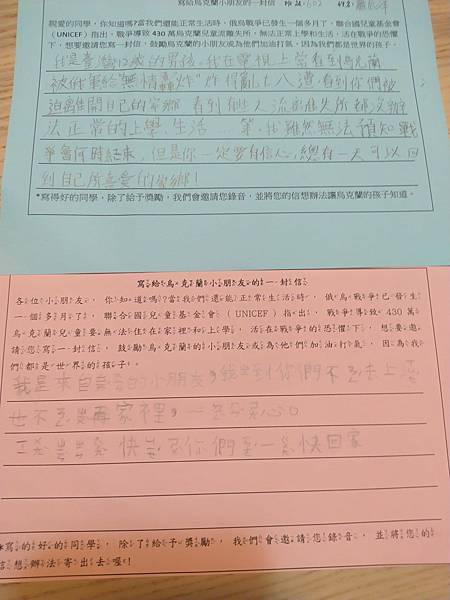 寫給烏克蘭小朋友的一封信
602
親愛的同學，你知道嗎?當我們還能正常生活時，俄烏戰爭已發生一個多月了，聯合國兒童基金會
(UNICEF)指出，戰爭導致 430 萬烏克蘭兒童流離失所，無法正常上學和生活，活在戰爭的恐懼
下，想要邀請您寫一封信，鼓勵烏克蘭的小朋友或為他們加油打氣，因為我們都是世界的孩子。
我是臺灣12歲的男孩，我在電視上常看到烏克蘭
被俄軍給"無情轟炸"炸得亂七八遭，看到你們被
迫離開自己的家鄉 看到他人流離失所都沒辦
法正常的上學、生活...等，我雖然無法預知戰
爭會何時結束，但是你一定要有信心，總有一天可以回
到自己所喜愛的家鄉!
*寫得好的同學，除了給予獎勵，我們會邀請您錄音，並將您的信想辦法讓烏克蘭的孩子知道。
寫給烏克蘭小朋友的一封信
各位小朋友，你知道嗎?當我們還能正常生活時，俄烏戰爭已發生
一個多月了，聯合國兒童基金會(UNICEF)指出，戰爭導致 430 萬
烏克蘭兒童無法住在家裡和上學，活在戰爭的恐懼下，想要邀
請您寫一封信，鼓勵烏克蘭的小朋友或為他們加油打氣，因為我
們都是世界的孩子。
我是來自臺灣的小朋友，我 到你們不 去上
也不 再家裡，一 心
快 你們 一 快回家
*寫的好的同學，除了給予獎勵，我們會邀請您錄音，並將您的
信想辦法寄出去喔!